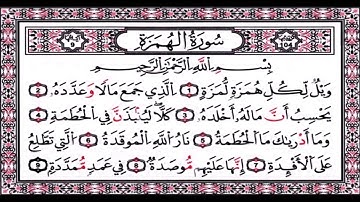 سُورَةُ الْهُمَزَةِ
بِسْمِ اللَّهِ الرَّحْمَٰنِ الرَّحِيمِ
وَيْلٌ لِّكُلِّ هُمَزَةٍ لُّمَزَةٍ ‎1 الَّذِي جَمَعَ مَالًا وَعَدَّدَهُ ‎2
يَحْسَبُ أَنَّ مَالَهُ أَخْلَدَهُ ‎3 كَلَّا لَيُنبَذَنَّ فِي الْحُطَمَةِ ‎4
وَمَا أَدْرَاكَ مَا الْحُطَمَةُ ‎5 نَارُ اللَّهِ الْمُوقَدَةُ ‎6 الَّتِي تَطَّلِعُ
عَلَى الْأَفْئِدَةِ ‎7 إِنَّهَا عَلَيْهِم مُّوصَدَةٌ ‎8 فِي عَمَدٍ مُّمَدَّدَةٍ ‎9